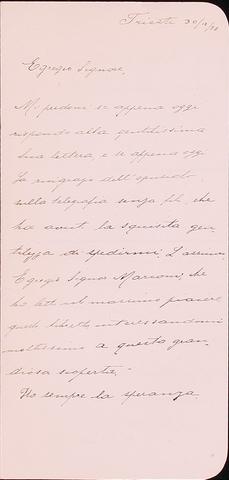 Trieste 30/12/98
Egregio Signore,
Mi perdoni se appena oggi
rispondo alla gentilissima
Sua lettera, e se appena oggi
La ringrazio dell'opuscolo
sulla telegrafia senza fili, che
ha avuto la squisita gen-
tilezza di spedirmi. L'assicuro
Egregio Signor Marconi, che
ho letto col massimo piacere
quel libretto, interessandomi
moltissimo a questa gran-
diosa scoperta.
Ho sempre la speranza